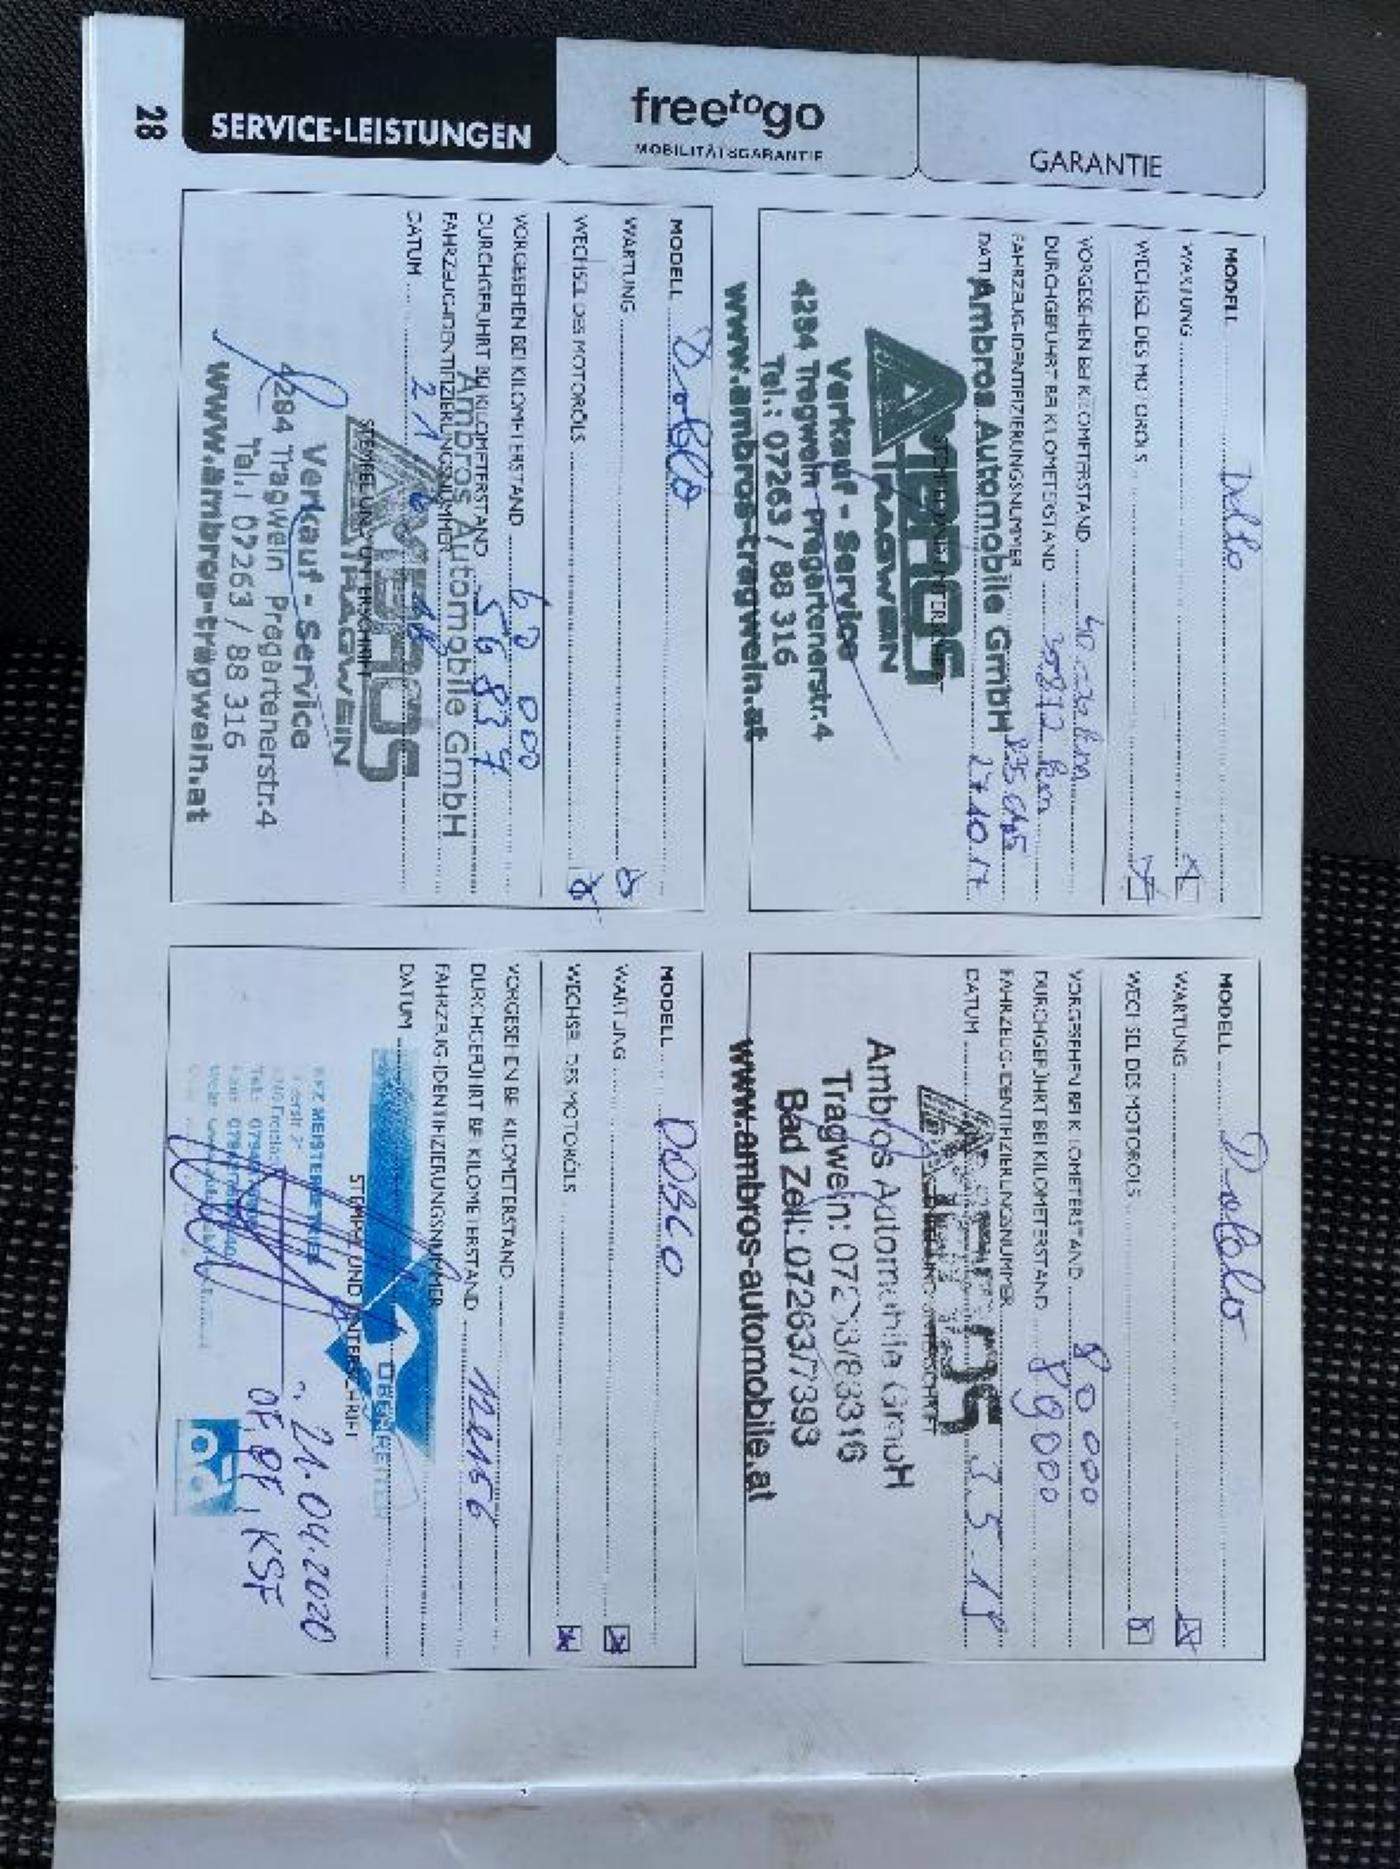 28
SERVICE-LEISTUNGEN
freetogo
MOBILITÄTSGARANTIE
GARANTIE
MODELL
WARTUNG
WECHSEL DES MOTORÖLS
VORGESEHEN BEI KILOMETERSTAND
DURCHGEFÜHRT BEI KILOMETERSTAND
FAHRZEUG-IDENTIFIZIERUNGSNUMMER
DATUM 27.10.17
Ambros Automobile GmbH
AMBROS
TRAGWEIN
Verkauf - Service
4284 Tragwein Pregartenerstr.4
Tel.: 07263 / 88 316
www.ambros-tragwein.at
MODELL Doblo
WARTUNG
WECHSEL DES MOTORÖLS
VORGESEHEN BEI KILOMETERSTAND 80 000
DURCHGEFÜHRT BEI KILOMETERSTAND 89000
FAHRZEUG-IDENTIFIZIERUNGSNUMMER
DATUM
STEMPEL UND UNTERSCHRIFT
AMBROS
Ambros Automobile GmbH
Tragwein: 07263/88316
Bad Zell: 07263/7393
www.ambros-automobile.at
MODELL Doblo
WARTUNG
WECHSEL DES MOTORÖLS
VORGESEHEN BEI KILOMETERSTAND 60 000
DURCHGEFÜHRT BEI KILOMETERSTAND 56837
FAHRZEUG-IDENTIFIZIERUNGSNUMMER
DATUM
Ambros Automobile GmbH
STEMPEL UND UNTERSCHRIFT
AMBROS
TRAGWEIN
Verkauf - Service
4284 Tragwein Pregartenerstr.4
Tel.: 07263 / 88 316
www.ambros-tragwein.at
MODELL DOBLO
WARTUNG
WECHSEL DES MOTORÖLS
VORGESEHEN BEI KILOMETERSTAND
DURCHGEFÜHRT BEI KILOMETERSTAND
FAHRZEUG-IDENTIFIZIERUNGSNUMMER
DATUM
STEMPEL UND UNTERSCHRIFT
KFZ MEISTERBETRIEB
21.04.2020
KSF
ad